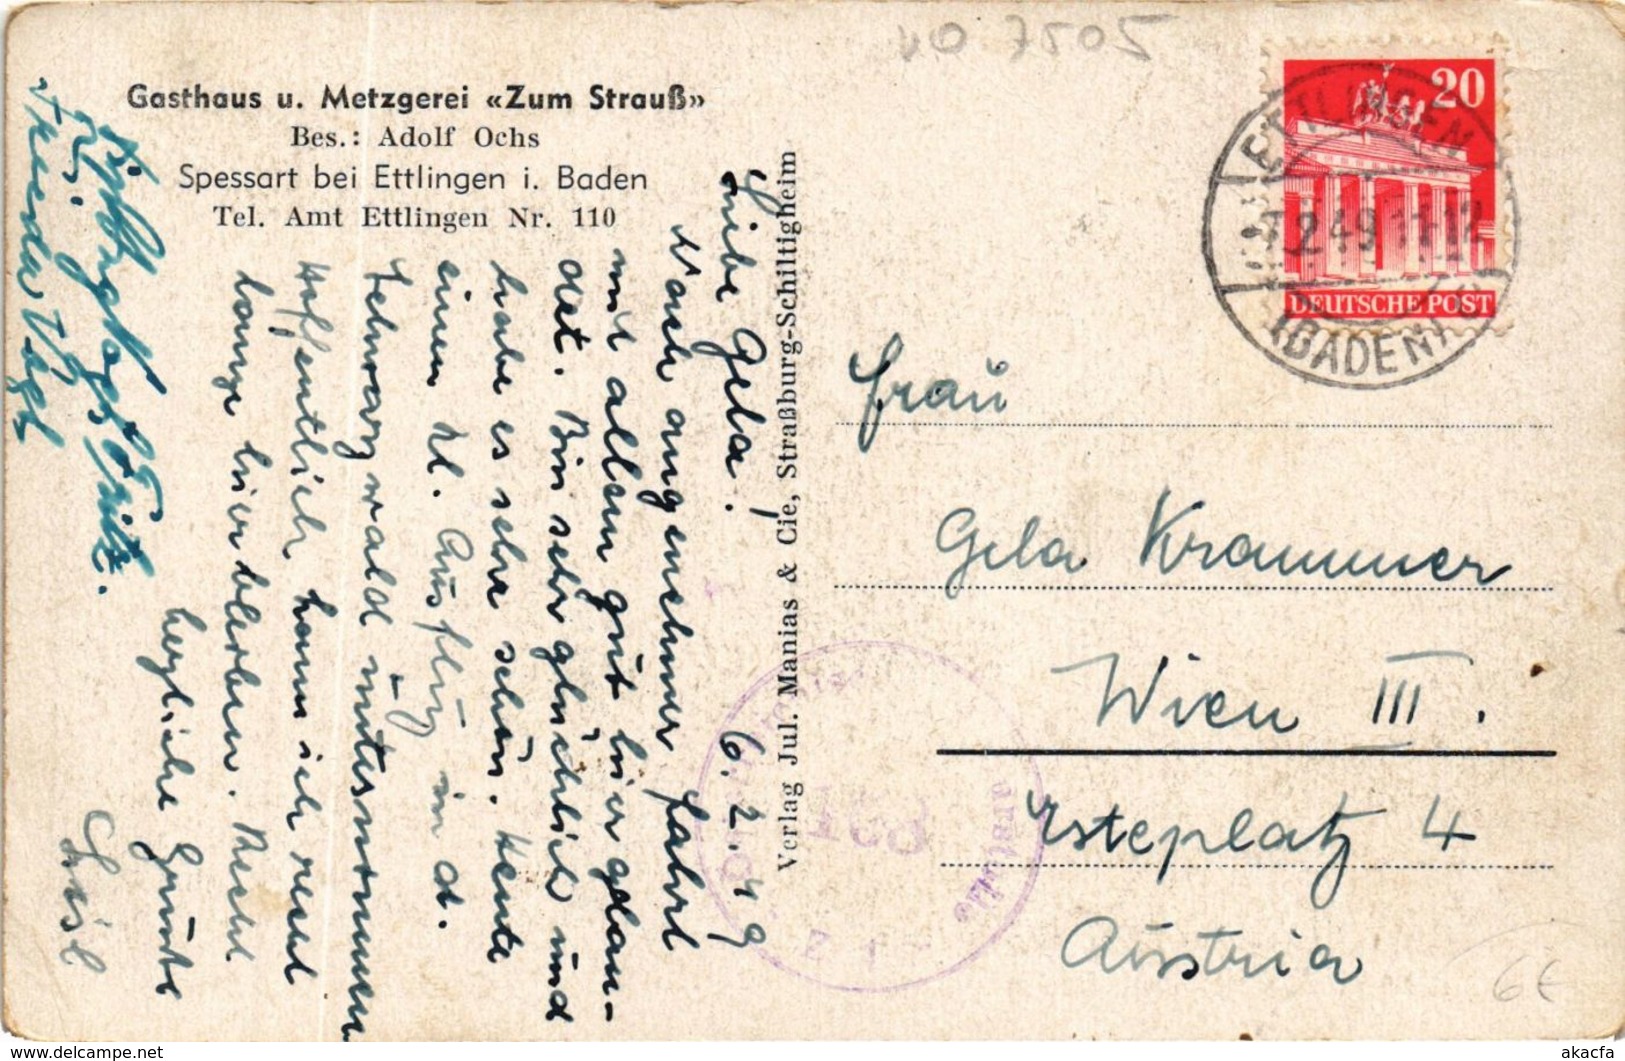 Gasthaus u. Metzgerei «Zum Strauß»
Bes.: Adolf Ochs
Spessart bei Ettlingen i. Baden
Tel. Amt Ettlingen Nr. 110
6. 2. 49
Liebe Gela!
Nach angenehmer Fahrt
mit allem gut hier gelan-
det. Bin sehr glücklich und
habe es sehr schön. Heute
einen kl. Ausflug in d.
Schwarzwald unternommen
Hoffentlich kann ich recht
lange hier bleiben. Recht
herzliche Grüsse
Luisl
Fritz.
Verlag Jul. Manias & Cie, Straßburg-Schiltigheim
10 7505
20
DEUTSCHE POST
ETTLINGEN
2.49.11-12
(BADEN)
Frau
Gela Krammer
Wien III.
Esteplatz 4
Austria
6€
akacfa